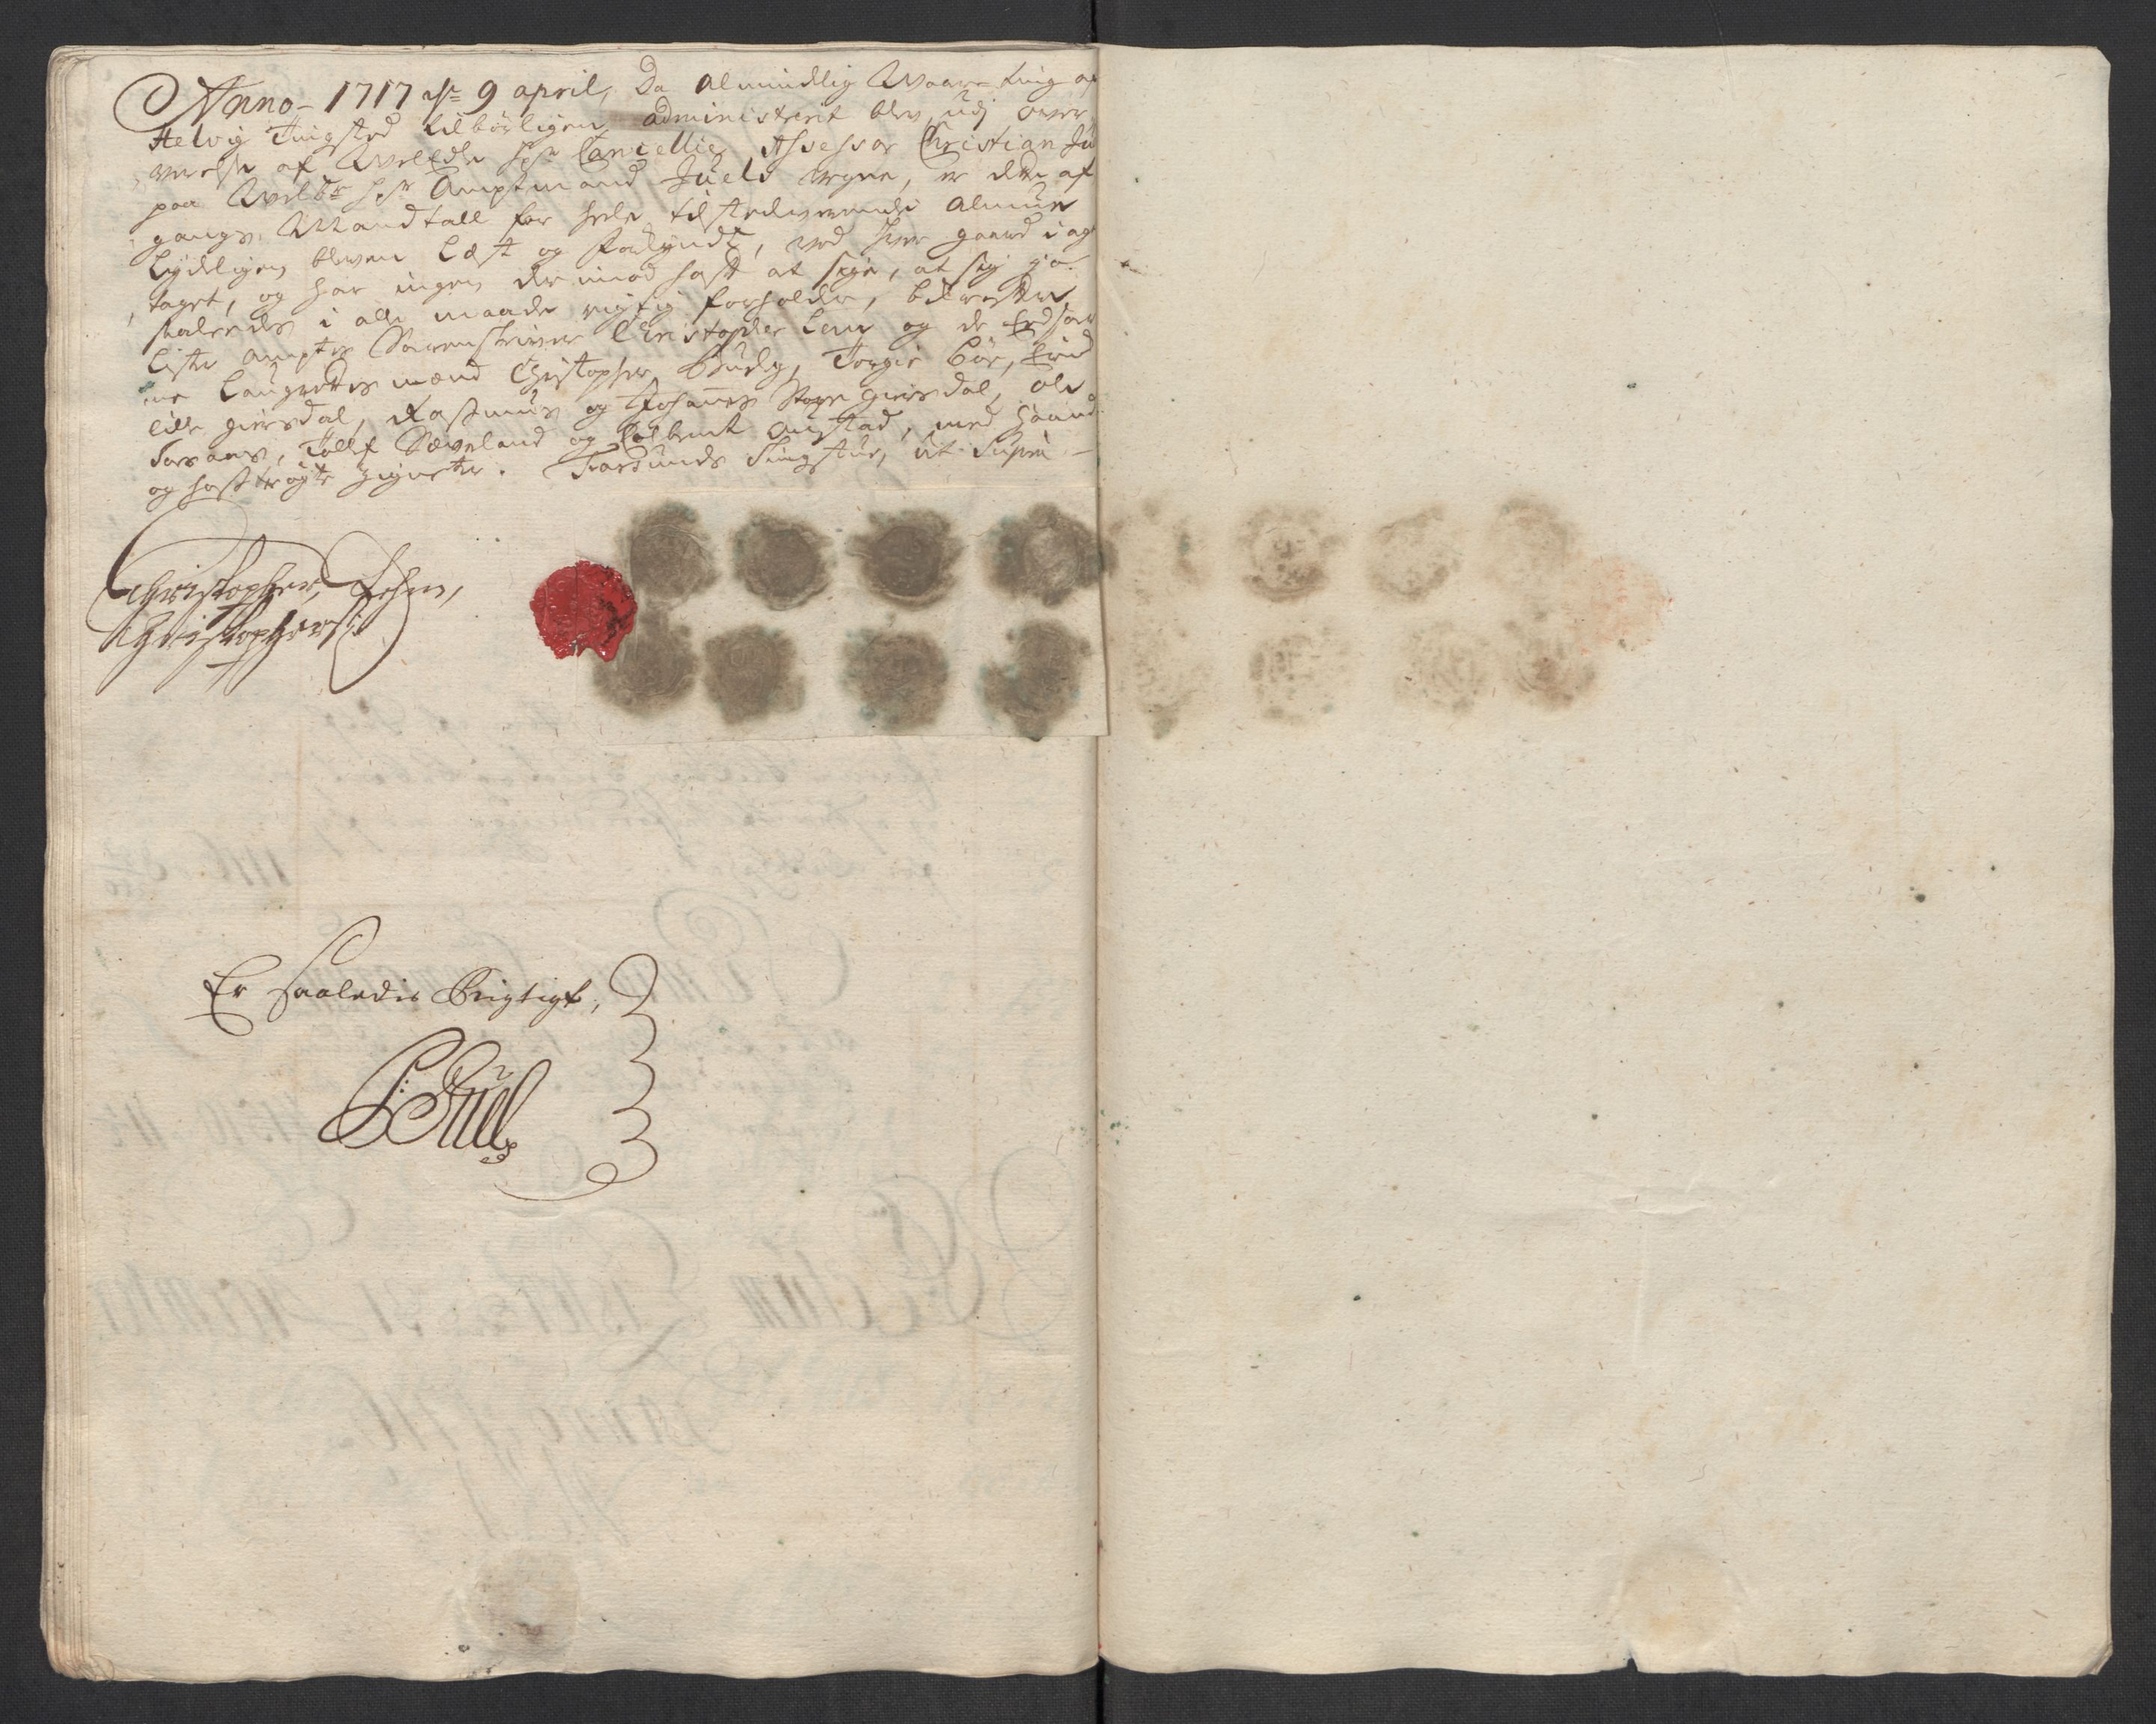 Anno 1717 d: 9 april, Da Almindelig Waare ting af
Helvig Tingsted tilbørligen administreret blev, udj over
værelse af Welædle Hr Cancellie Assessor Christian Ju
paa Welbr Hr Amptmand Juels vegne, er dette af
gangs Mandtall for hele tilstedværende Almue
lydeligen bleven Læst og forkyndt, ved hver gaard i ag
taget, og har ingen derimod hafft at sige, at sig jo
i alle maader rigtig forholder, bekræfter
Liste Ampter Sorenskriver Christopher Lem og de Eedsor
ne Laugrettes mænd Christopher Torgie Bøe,
Lille giersdal, Rasmus og Johannes Store giersdal, Ole
Tollef Sæveland og Aagstad, med Haand
og hostrøgte Zigneter. Farsunds Tingstue, ut Supra
Christopher Lehm,
Christophersen
Er saaledis Rigtigt,
Juel